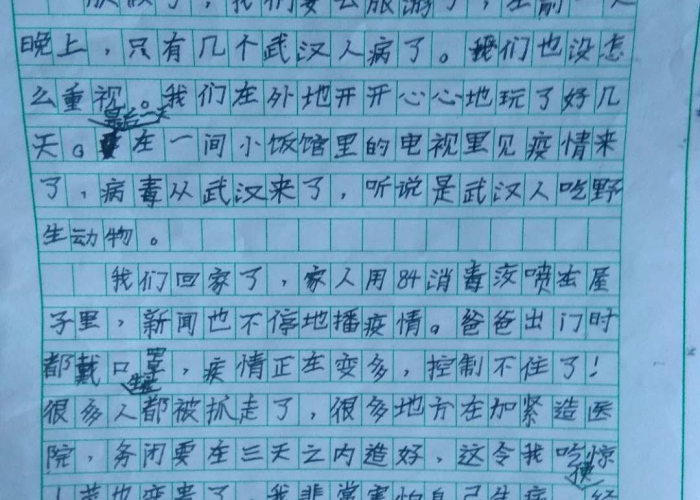 放假了，我们要去旅游了，在前一天
晚上，只有几个武汉人病了。我们也没怎
么重视。我们在外地开开心心地玩了好几
最后一天
天。在一间小饭馆里的电视里见疫情来
了，病毒从武汉来了，听说是武汉人吃野
生动物。
我们回家了，家人用84消毒液喷在屋
子里，新闻也不停地播疫情。爸爸出门时
都戴口罩，疾情正在变多，控制不住了！
生症
很多人都被抓走了，很多地方在加紧造医
院，务闭要在三天之内造好，这令我吃惊
了，我非常害怕自己生病